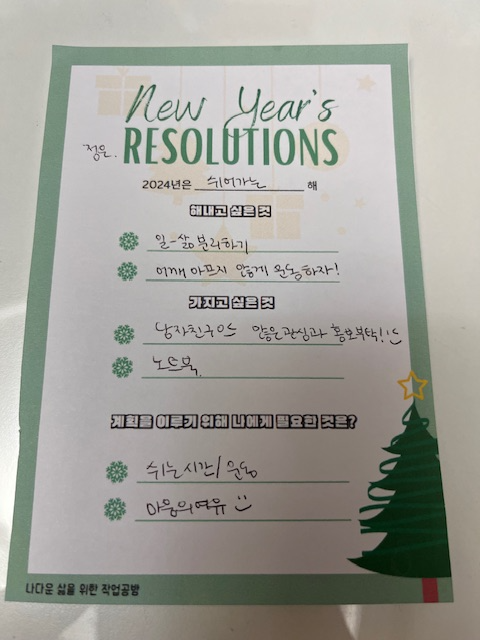 New Year's
정은.
RESOLUTIONS
2024년은 쉬어가는 해
해내고 싶은 것
일-삶 분리하기
어깨 아프지 않게 운동하자!
가지고 싶은 것
남자친구 많은 관심과 홍보부탁! :)
노트북.
계획을 이루기 위해 나에게 필요한 것은?
쉬는시간/운동
마음의 여유 :)
나다운 삶을 위한 작업공방